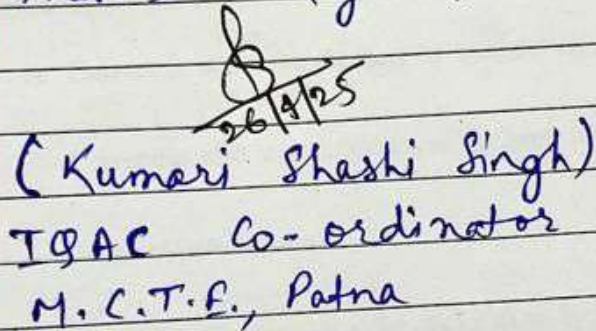 26/4/25
(Kumari Shashi Singh)
IQAC Co-ordinator
M.C.T.E., Patna